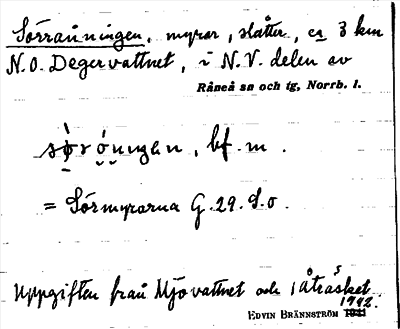 Sörråningen, myror, slåtter, ca 3 km
N.O. Degervattnet, i N.V. delen av
Råneå sn och tg, Norrb. l.
bf. m.
= Sörmyrorna G. 29. S.o.
Uppgiften från Mjövattnet och
1942.
EDVIN BRÄNNSTRÖM